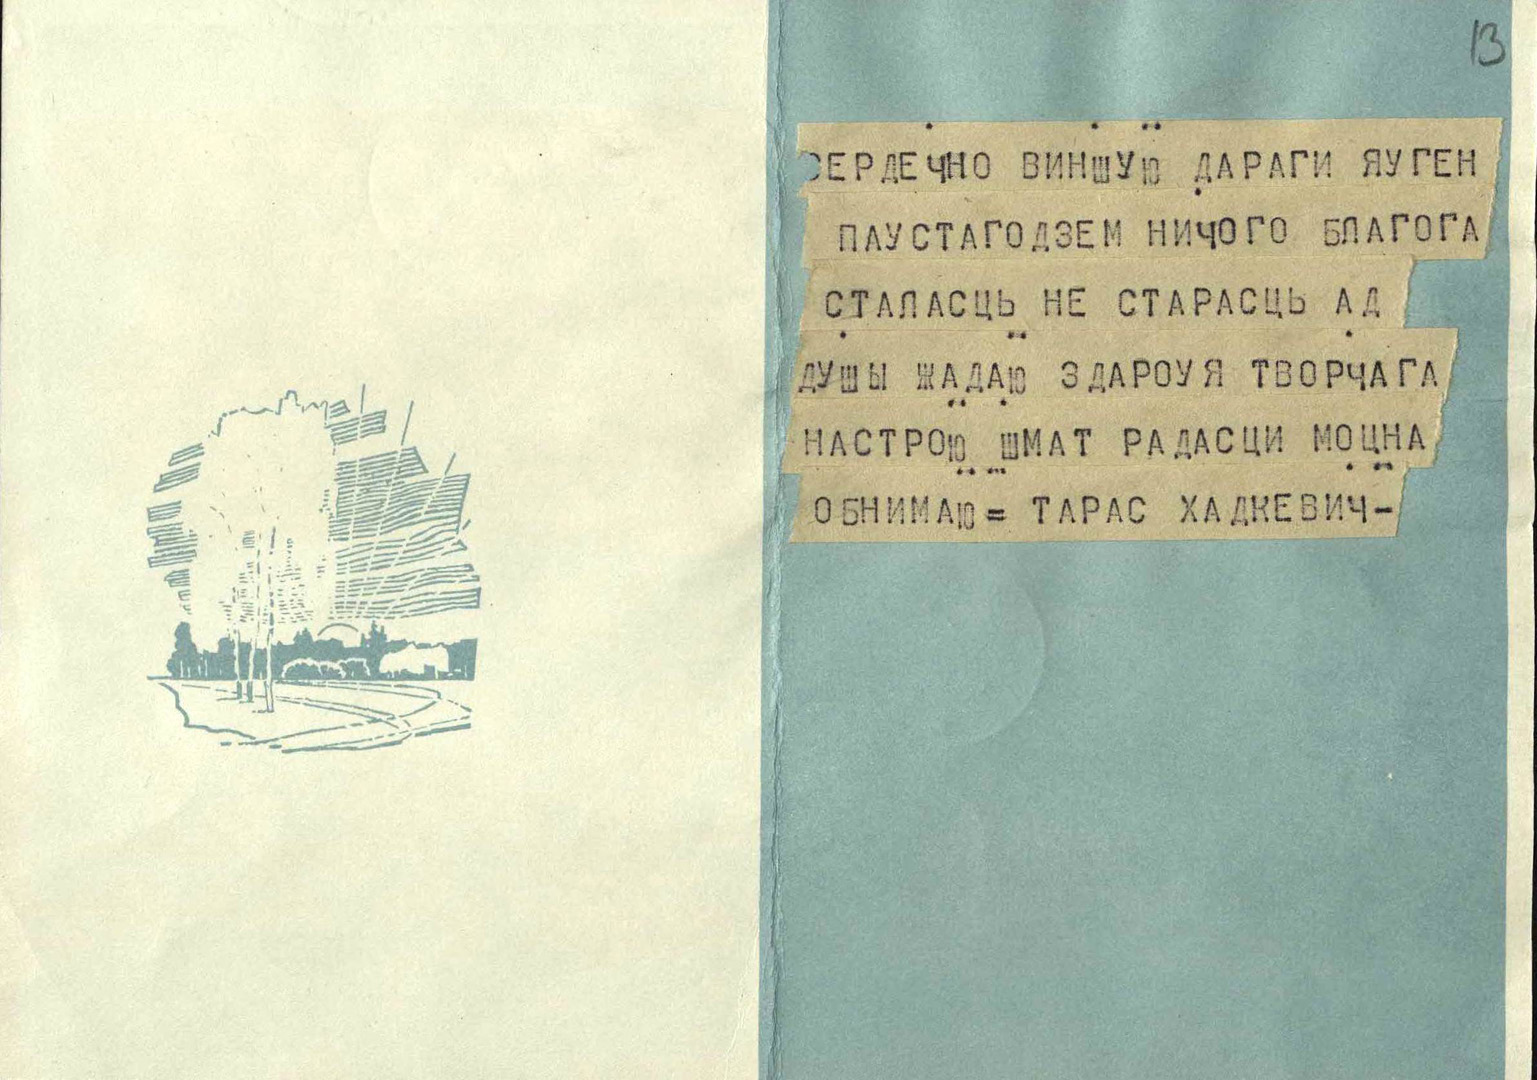 13
СЕРДЕЧНО ВИНШУЮ ДАРАГИ ЯУГЕН
ПАУСТАГОДЗЕМ НИЧОГО БЛАГОГА
СТАЛАСЦЬ НЕ СТАРАСЦЬ АД
ДУШЫ ЖАДАЮ ЗДАРОУЯ ТВОРЧАГА
НАСТРОЮ ШМАТ РАДАСЦИ МОЦНА
ОБНИМАЮ= ТАРАС ХАДКЕВИЧ-